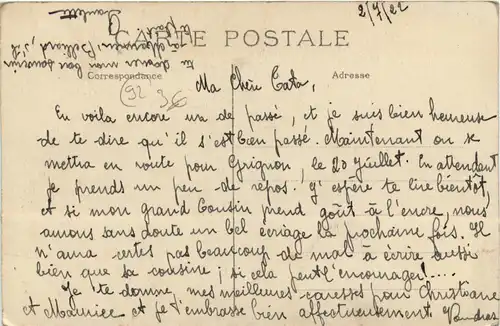 2/7/22
CARTE POSTALE
Correspondance
Adresse
92
36
Ma Chère Tata,
En voila encore un de passé, et je suis bien heureuse
de te dire qu'il s'est bien passé. Maintenant on se
mettra en route pour Grignon, le 20 juillet. En attendant
je prends un peu de repos. J'espère te lire bientôt,
et si mon grand Cousin prend goût à l'encre, nous
aurons sans doute un bel écriage la prochaine fois. Il
n'aura certes pas beaucoup de mal à écrire aussi
bien que sa cousine ; si cela peut l'encourager !....
Je te donne mes meilleures caresses pour Christiane
et Maurice et je t'embrasse bien affectueusement
te donner mon bon souvenir
à
s'il
te plaît